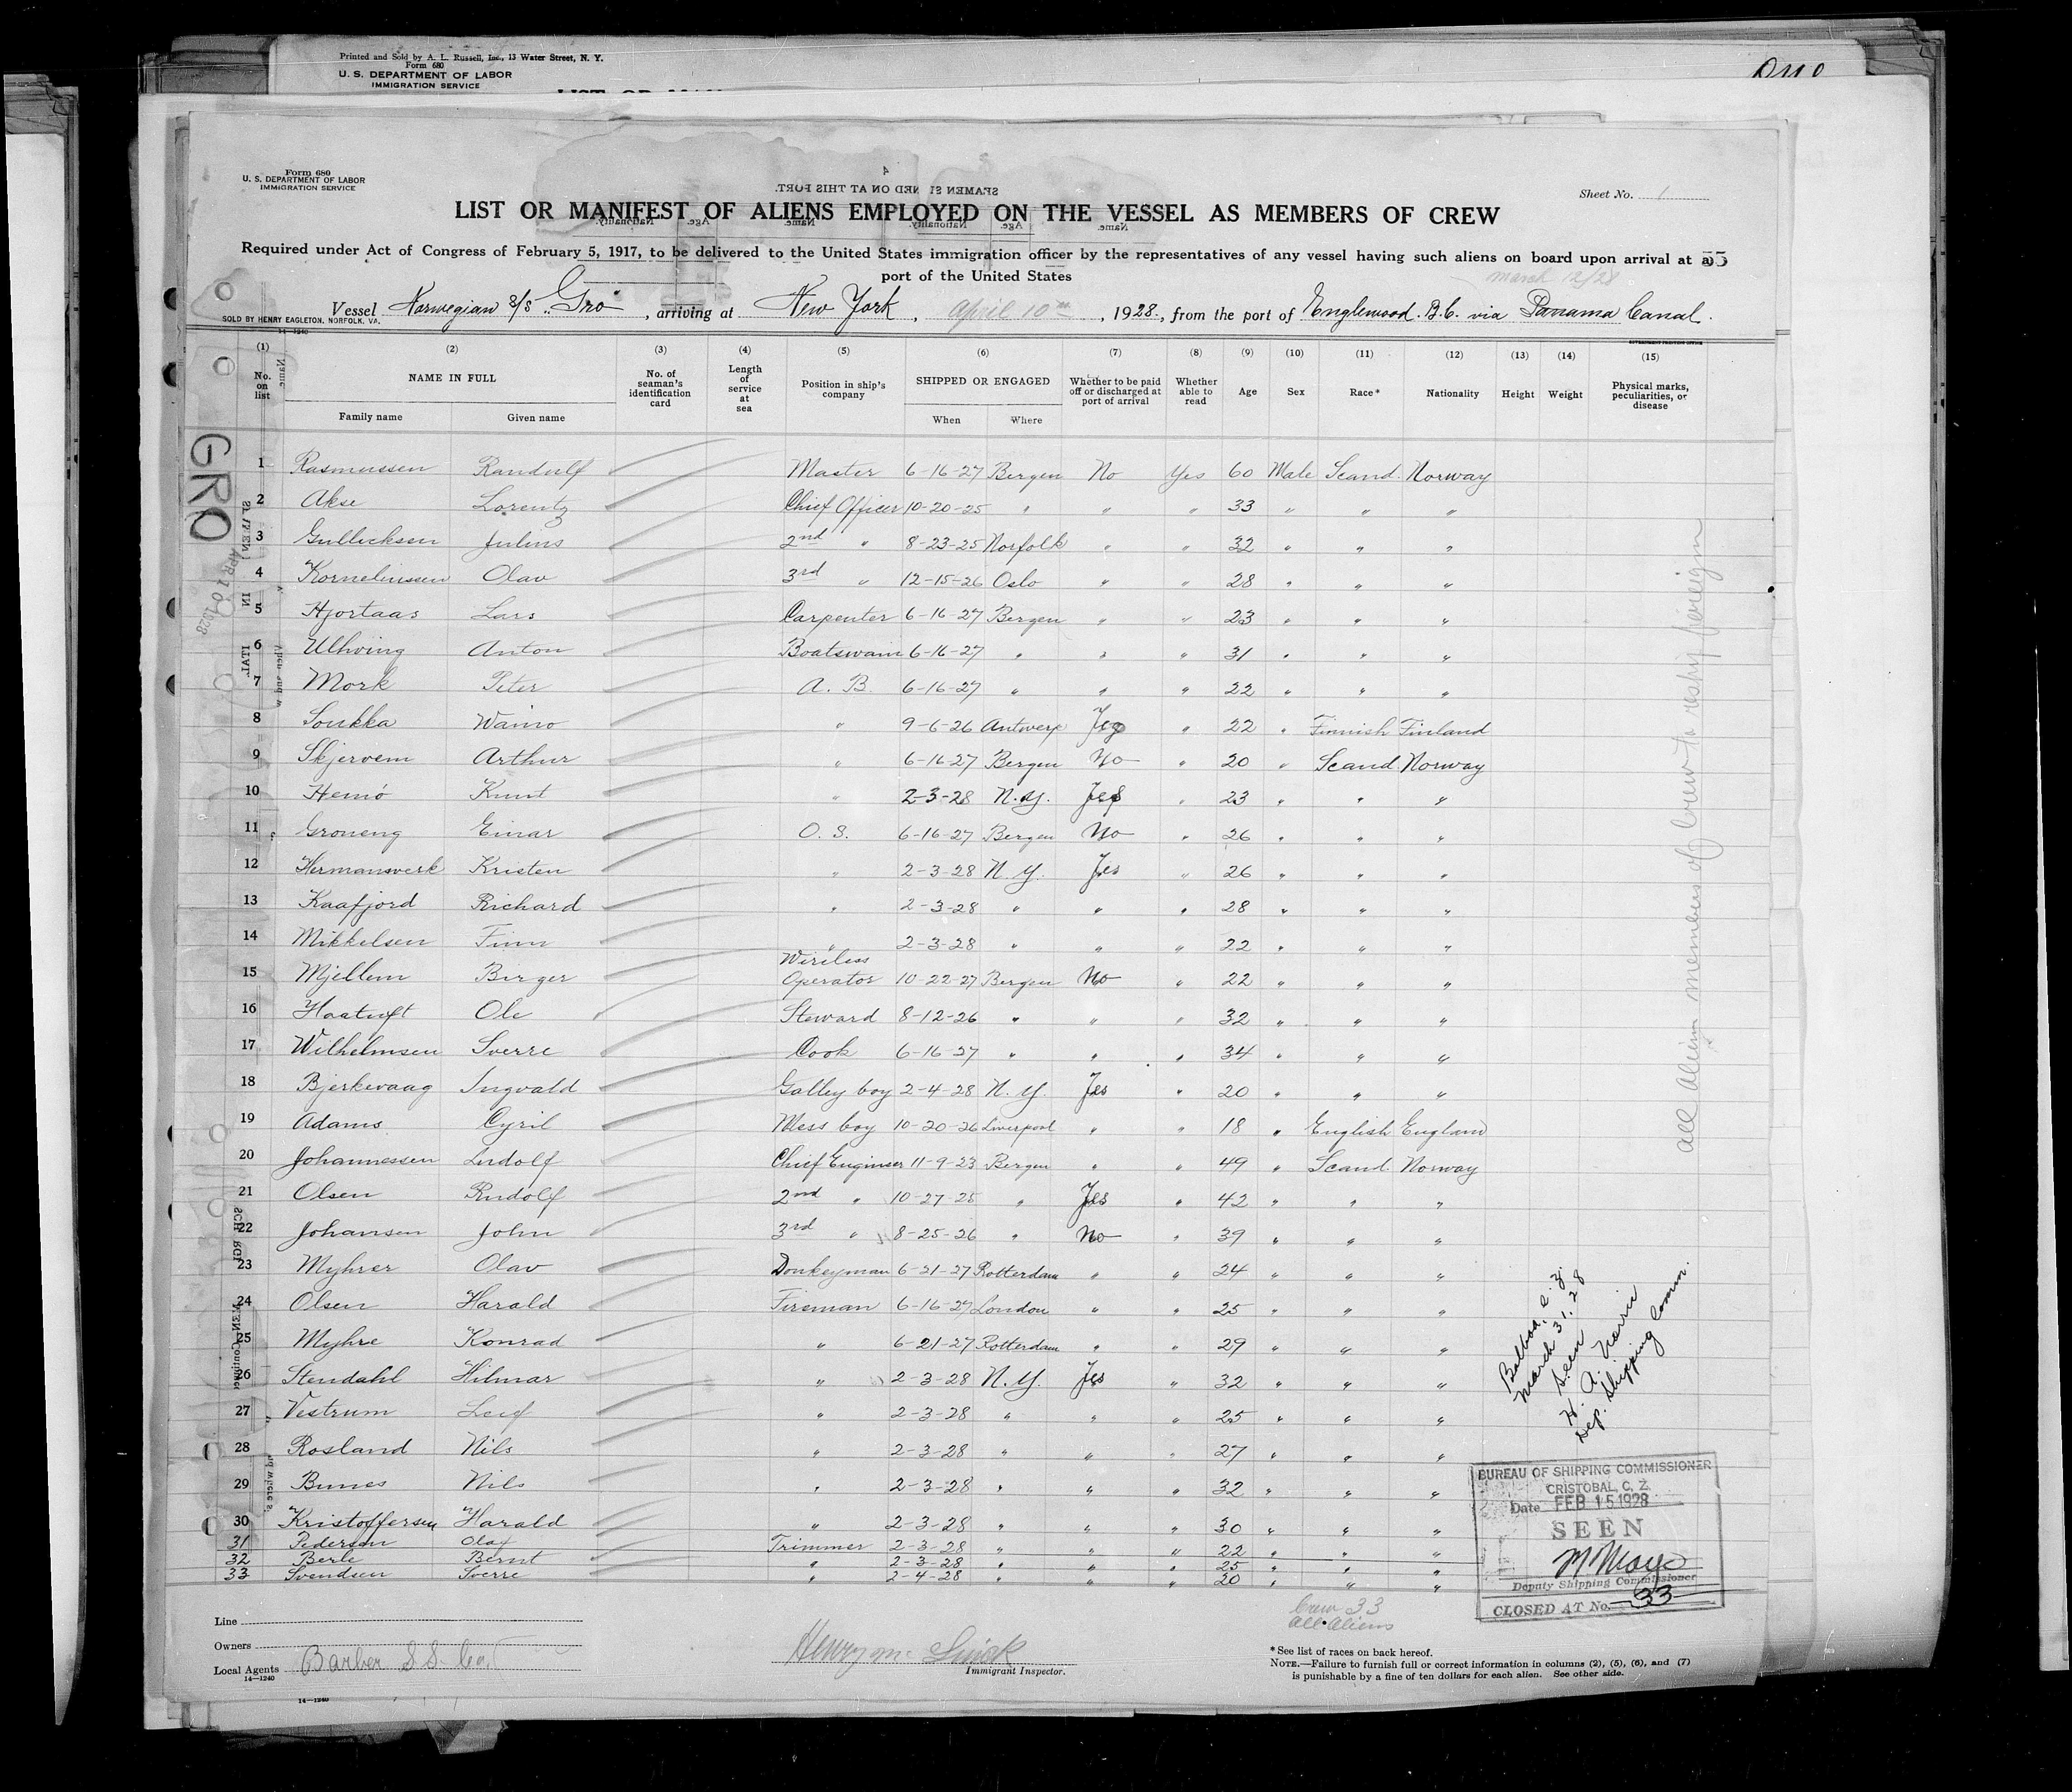 Printed and Sold by A. L. Russell, Inc., 13 Water Street, N. Y.
Form 680
U. S. DEPARTMENT OF LABOR
IMMIGRATION SERVICE
Form 680
U. S. DEPARTMENT OF LABOR
IMMIGRATION SERVICE
Sheet No. 1
LIST OR MANIFEST OF ALIENS EMPLOYED ON THE VESSEL AS MEMBERS OF CREW
Required under Act of Congress of February 5, 1917, to be delivered to the United States immigration officer by the representatives of any vessel having such aliens on board upon arrival at a
port of the United States
March 12/28
Vessel Norwegian S/S "Gro", arriving at New York, April 10th, 1928, from the port of Englewood. B.C. via Panama Canal.
SOLD BY HENRY EAGLETON, NORFOLK, VA.
14-1240
(1) (2) (3) (4) (5) (6) (7) (8) (9) (10) (11) (12) (13) (14) (15)
No. on list NAME IN FULL Family name Given name No. of seaman's identification card Length of service at sea Position in ship's company SHIPPED OR ENGAGED When Where Whether to be paid off or discharged at port of arrival Whether able to read Age Sex Race* Nationality Height Weight Physical marks, peculiarities, or disease
GRO
APR 10 1928
1 Rasmussen Randulf Master 6-16-27 Bergen No Yes 60 Male Scand. Norway
2 Akse Lorentz Chief Officer 10-20-25 " " " 33 " " "
3 Gullicksen Julius 2nd " 8-23-25 Norfolk " " 32 " " "
4 Korneliussen Olav 3rd " 12-15-26 Oslo " " 28 " " "
5 Hjortaas Lars Carpenter 6-16-27 Bergen " " 23 " " "
6 Ulhving Anton Boatswain 6-16-27 " " " 31 " " "
7 Mork Peter A. B. 6-16-27 " " " 22 " " "
8 Soukka Waino " 9-6-26 Antwerp Yes " 22 " Finnish Finland
9 Skjervem Arthur " 6-16-27 Bergen No " 20 " Scand Norway
10 Hemö Knut " 2-3-28 N.Y. Yes " 23 " " "
11 Groneng Einar O. S. 6-16-27 Bergen No " 26 " " "
12 Hermansverk Kristen " 2-3-28 N.Y. Yes " 26 " " "
13 Kaafjord Richard " 2-3-28 " " " 28 " " "
14 Mikkelsen Finn " 2-3-28 " " " 22 " " "
15 Mjellem Birger Wireless Operator 10-22-27 Bergen No " 22 " " "
16 Haatuft Ole Steward 8-12-26 " " " 32 " " "
17 Wilhelmsen Sverre Cook 6-16-27 " " " 34 " " "
18 Bjerkevaag Ingvald Galley boy 2-4-28 N.Y. Yes " 20 " " "
19 Adams Cyril Mess boy 10-20-26 Liverpool " " 18 " English England
20 Johannessen Ludolf Chief Engineer 11-9-23 Bergen " " 49 " Scand. Norway
21 Olsen Rudolf 2nd " 10-27-25 " Yes " 42 " " "
22 Johansen John 3rd " 8-25-26 " No " 39 " " "
23 Myhrer Olav Donkeyman 6-21-27 Rotterdam " " 24 " " "
24 Olsen Harald Fireman 6-16-27 London " " 25 " " "
25 Myhre Konrad " 6-21-27 Rotterdam " " 29 " " "
26 Stendahl Hilmar " 2-3-28 N.Y. Yes " 32 " " "
27 Vestrum Leif " 2-3-28 " " " 25 " " "
28 Rosland Nils " 2-3-28 " " " 27 " " "
29 Bunes Nils " 2-3-28 " " " 32 " " "
30 Kristoffersen Harald " 2-3-28 " " " 30 " " "
31 Pedersen Olaf Trimmer 2-3-28 " " " 22 " " "
32 Berle Bernt " 2-3-28 " " " 25 " " "
33 Svendsen Sverre " 2-4-28 " " " 20 " " "
all alien members of crew to reship foreign
Balboa, C. Z.
March 31, 28
Seen
H. A. Norris
Dep. Shipping Comm.
BUREAU OF SHIPPING COMMISSIONER
CRISTOBAL, C. Z.
Date FEB 15 1928
SEEN
Deputy Shipping Commissioner
CLOSED AT No. 33
Crew 33
All Aliens
Line
Owners
Local Agents Barber S.S. Co.
14-1240
Immigrant Inspector.
*See list of races on back hereof.
NOTE.—Failure to furnish full or correct information in columns (2), (5), (6), and (7)
is punishable by a fine of ten dollars for each alien. See other side.
14-1240